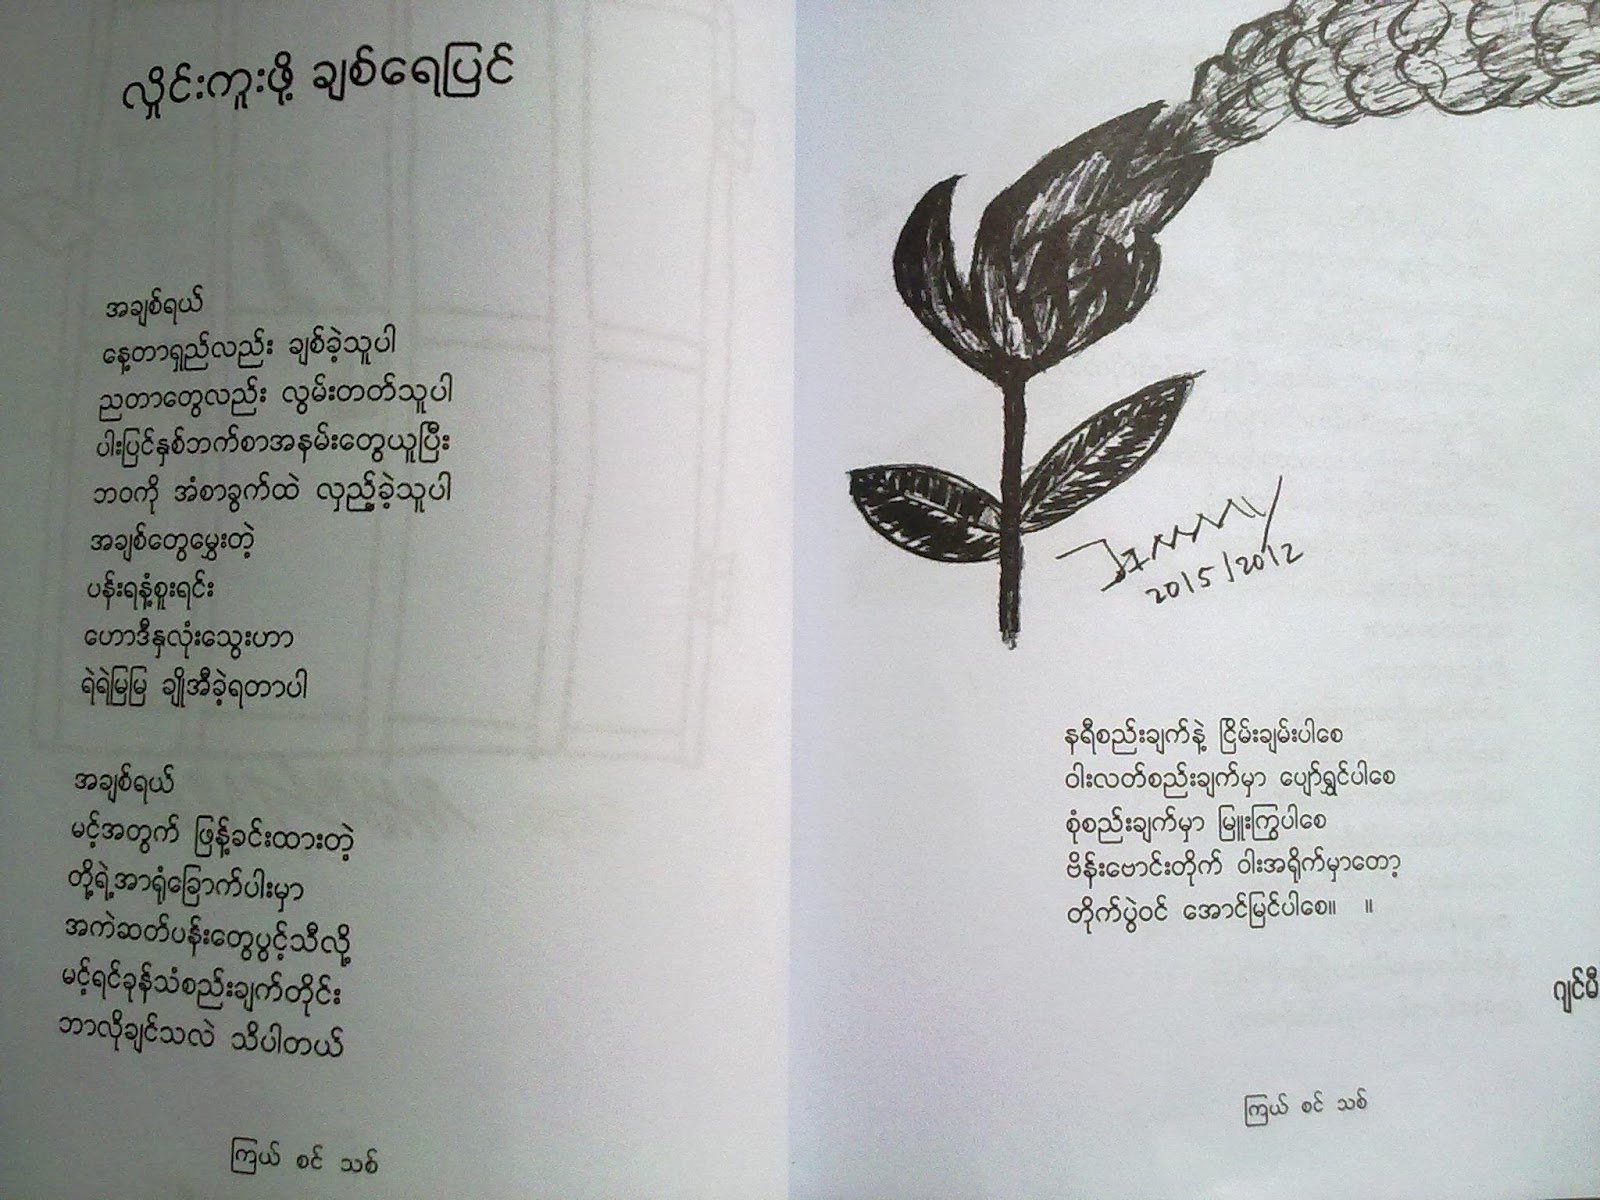 လှိုင်းကူးဖို့ ချစ်ရေပြင်
အချစ်ရယ်
နေ့တာရှည်လည်း ချစ်ခဲ့သူပါ
ညတာတွေလည်း လွမ်းတတ်သူပါ
ပါးပြင်နှစ်ဘက်စာအနမ်းတွေယူပြီး
ဘဝကို အံစာခွက်ထဲ လှည့်ခဲ့သူပါ
အချစ်တွေမွှေးတဲ့
ပန်းရနံ့စူးရင်း
ဟောဒီနှလုံးသွေးဟာ
ရဲရဲမြမြ ချိုအီခဲ့ရတာပါ
အချစ်ရယ်
မင့်အတွက် ဖြန့်ခင်းထားတဲ့
တို့ရဲ့အာရုံခြောက်ပါးမှာ
အကဲဆတ်ပန်းတွေပွင့်သီလို့
မင့်ရင်ခုန်သံစည်းချက်တိုင်း
ဘာလိုချင်သလဲ သိပါတယ်
ကြယ် စင် သစ်
20/5/2012
နရီစည်းချက်နဲ့ ငြိမ်းချမ်းပါစေ
ဝါးလတ်စည်းချက်မှာ ပျော်ရွှင်ပါစေ
စုံစည်းချက်မှာ မြူးကြွပါစေ
ဗိန်းဗောင်းတိုက် ဝါးအရိုက်မှာတော့
တိုက်ပွဲဝင် အောင်မြင်ပါစေ။ ။
ဂျင်မီ
ကြယ် စင် သစ်